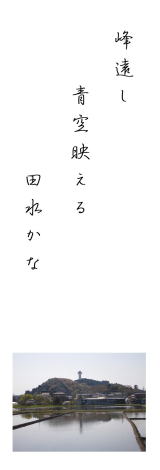 峰遠し
青空映える
田水かな